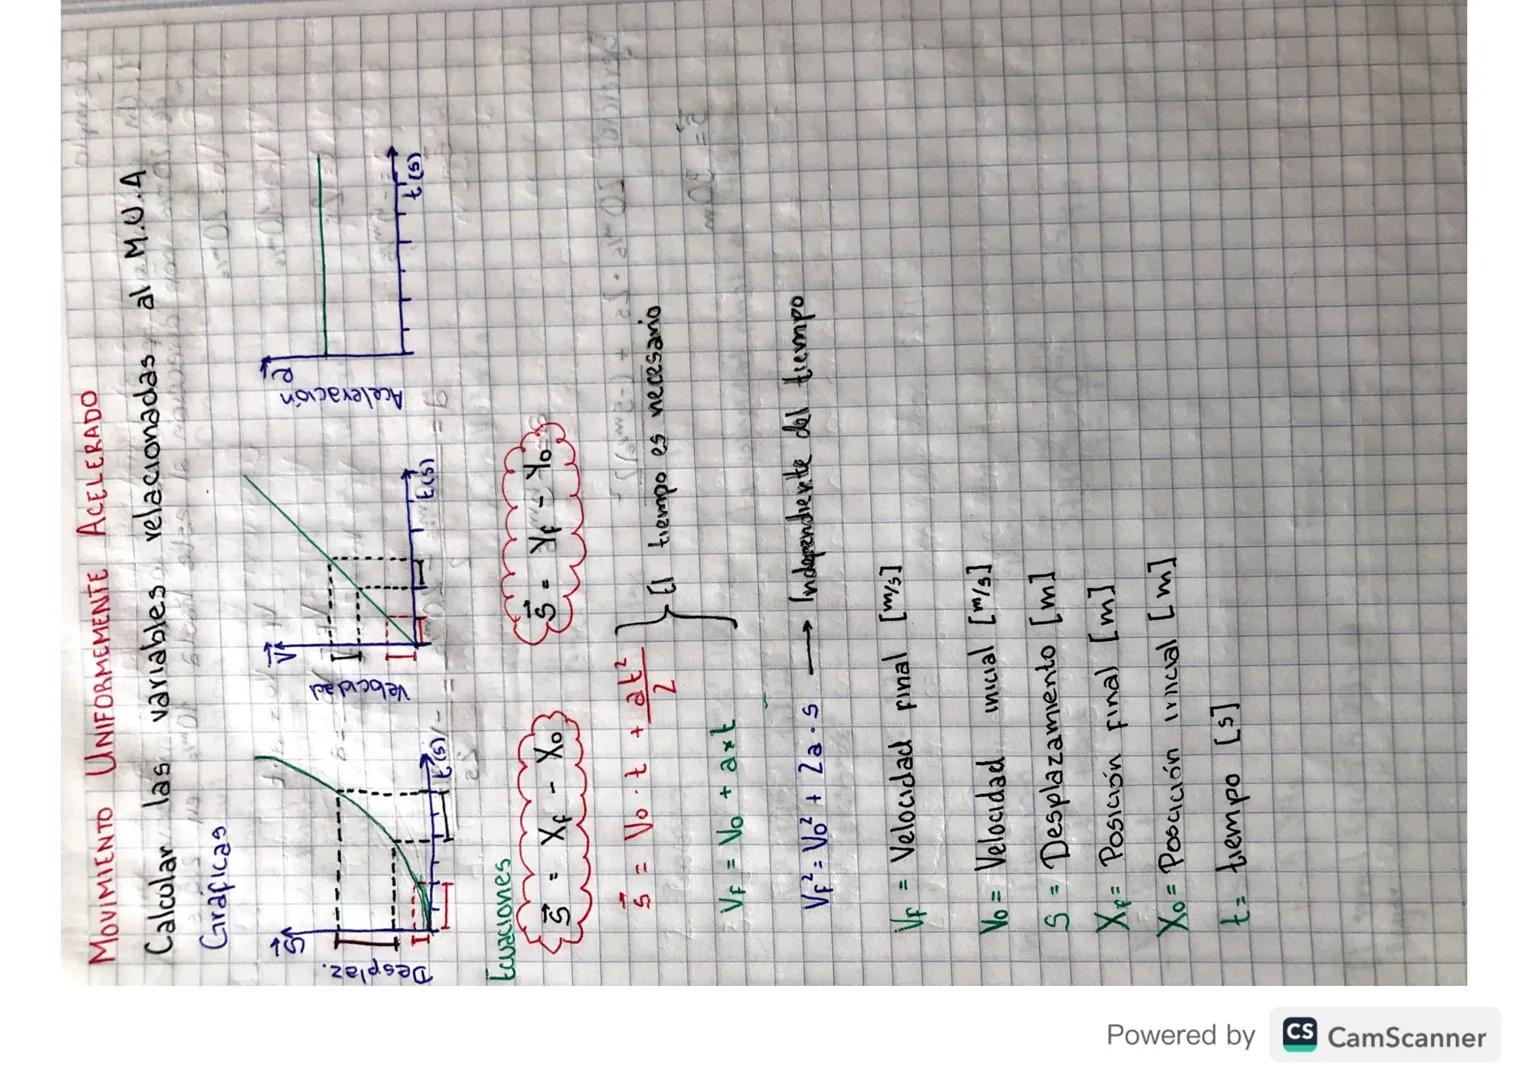 MOVIMIENTO UNIFORMEMENTE ACELERADO
Calcular las variables relacionadas al M.U.A
Gráficas
S
Desplaz.
t(s)
V
Velocidad
t(s)
a
Aceleración
t(s)
Ecuaciones
S = Xf - Xo
S = Yf - Yo
S = Vo · t + at²/2
El tiempo es necesario
Vf = Vo + axt
Vf² = Vo² + 2a · s → Independiente del tiempo
Vf = Velocidad final [m/s]
Vo = Velocidad inicial [m/s]
S = Desplazamiento [m]
Xf = Posición final [m]
Xo = Posición inicial [m]
t = tiempo [s]
Powered by CS CamScanner